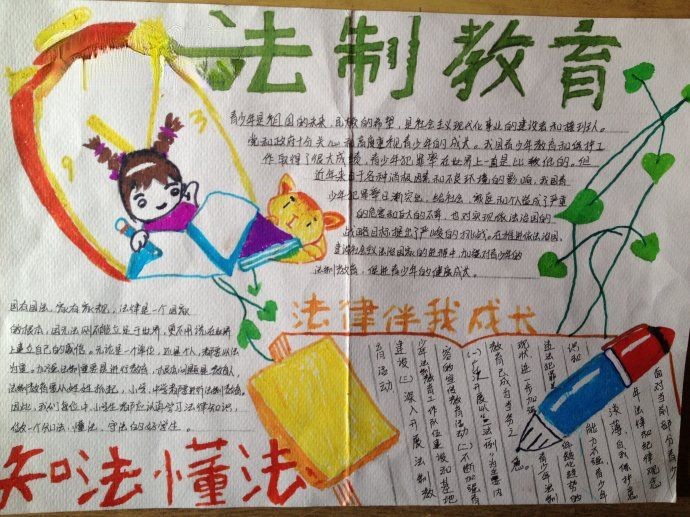 法制教育
青少年是祖国的未来，民族的希望，是社会主义现代化事业的建设者和接班人。
党和政府十分关心和高度重视青少年的成长。我国青少年教育和保护工
作取得了很大成绩，青少年犯罪率在世界上一直是比较低的。但
近年来由于各种消极因素和不良环境的影响，我国青
少年犯罪率日渐突出，给社会、家庭和个人造成了严重
的危害和巨大的不幸，也对实现依法治国的
战略目标提出了严峻的挑战。在推进依法治国，
建设社会主义法治国家的进程中，加强对青少年的
法制教育，促进青少年的健康成长。
国有国法，家有家规，法律是一个国家
的根本，国无法则不能立足于世界，更不用谈在世界
上建立自己的威信。无论是一个单位，还是个人，都要以法
为重。加强法制重要是进行教育，根本问题是教育人
法制教育要从娃娃抓起，小学、中学都要进行法制教育。
因此，我们每位中、小学生都应认真学习法律知识，
做一个知法、懂法、守法的好学生。
知法懂法
法律伴我成长
面对当前部分青少
年法律和纪律观念
淡薄，自我保护意
能力不强，青少年
识和
违法犯罪
的低龄化趋势的
现状，进一步加强
青少年法制
教育已成为当务之
急。
(一)广泛开展以"一法一例"为主要内
容的宣传教育活动(二)不断加强青
少年法制教育工作队伍建设和基地
建设(三)深入开展法制教
育活动